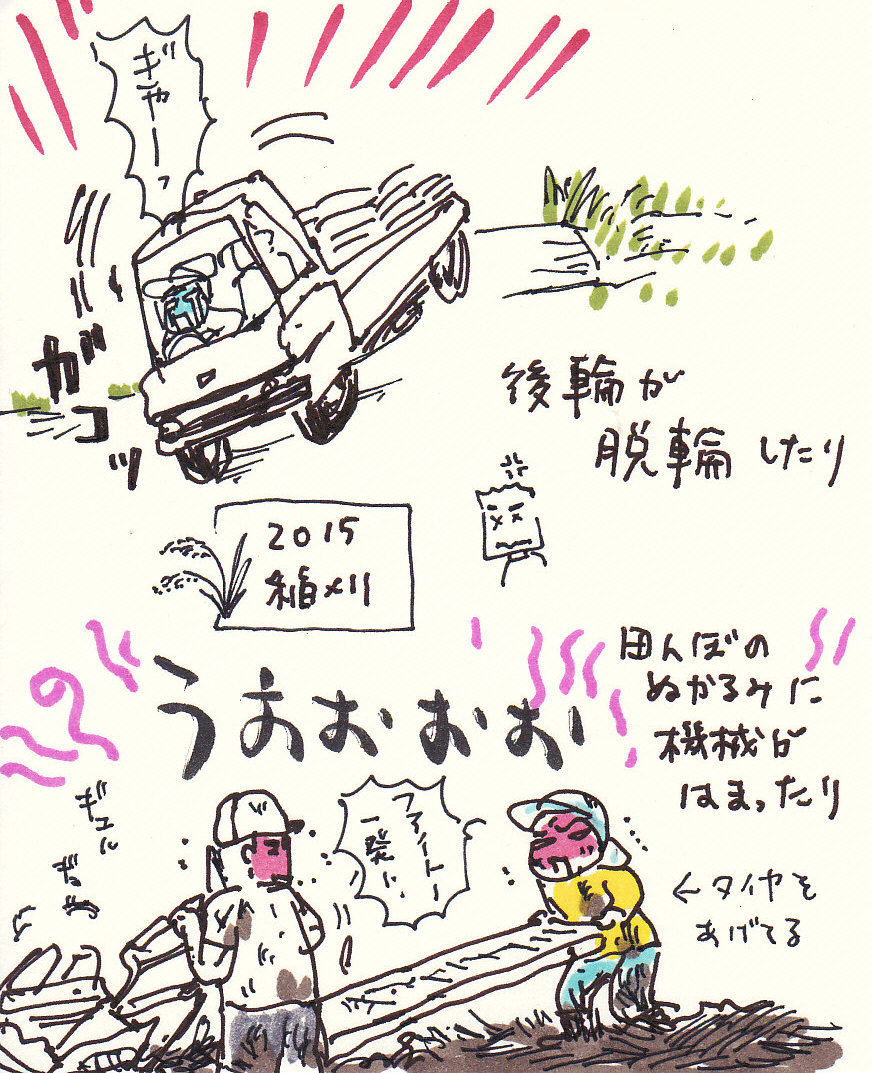 ぎゃーっ
ガコッ
後輪が
脱輪したり
2015
稲刈
田んぼの
ぬかるみに
機械が
はまったり
うおおおお
ファイトー
一発!!
←タイヤを
あげてる